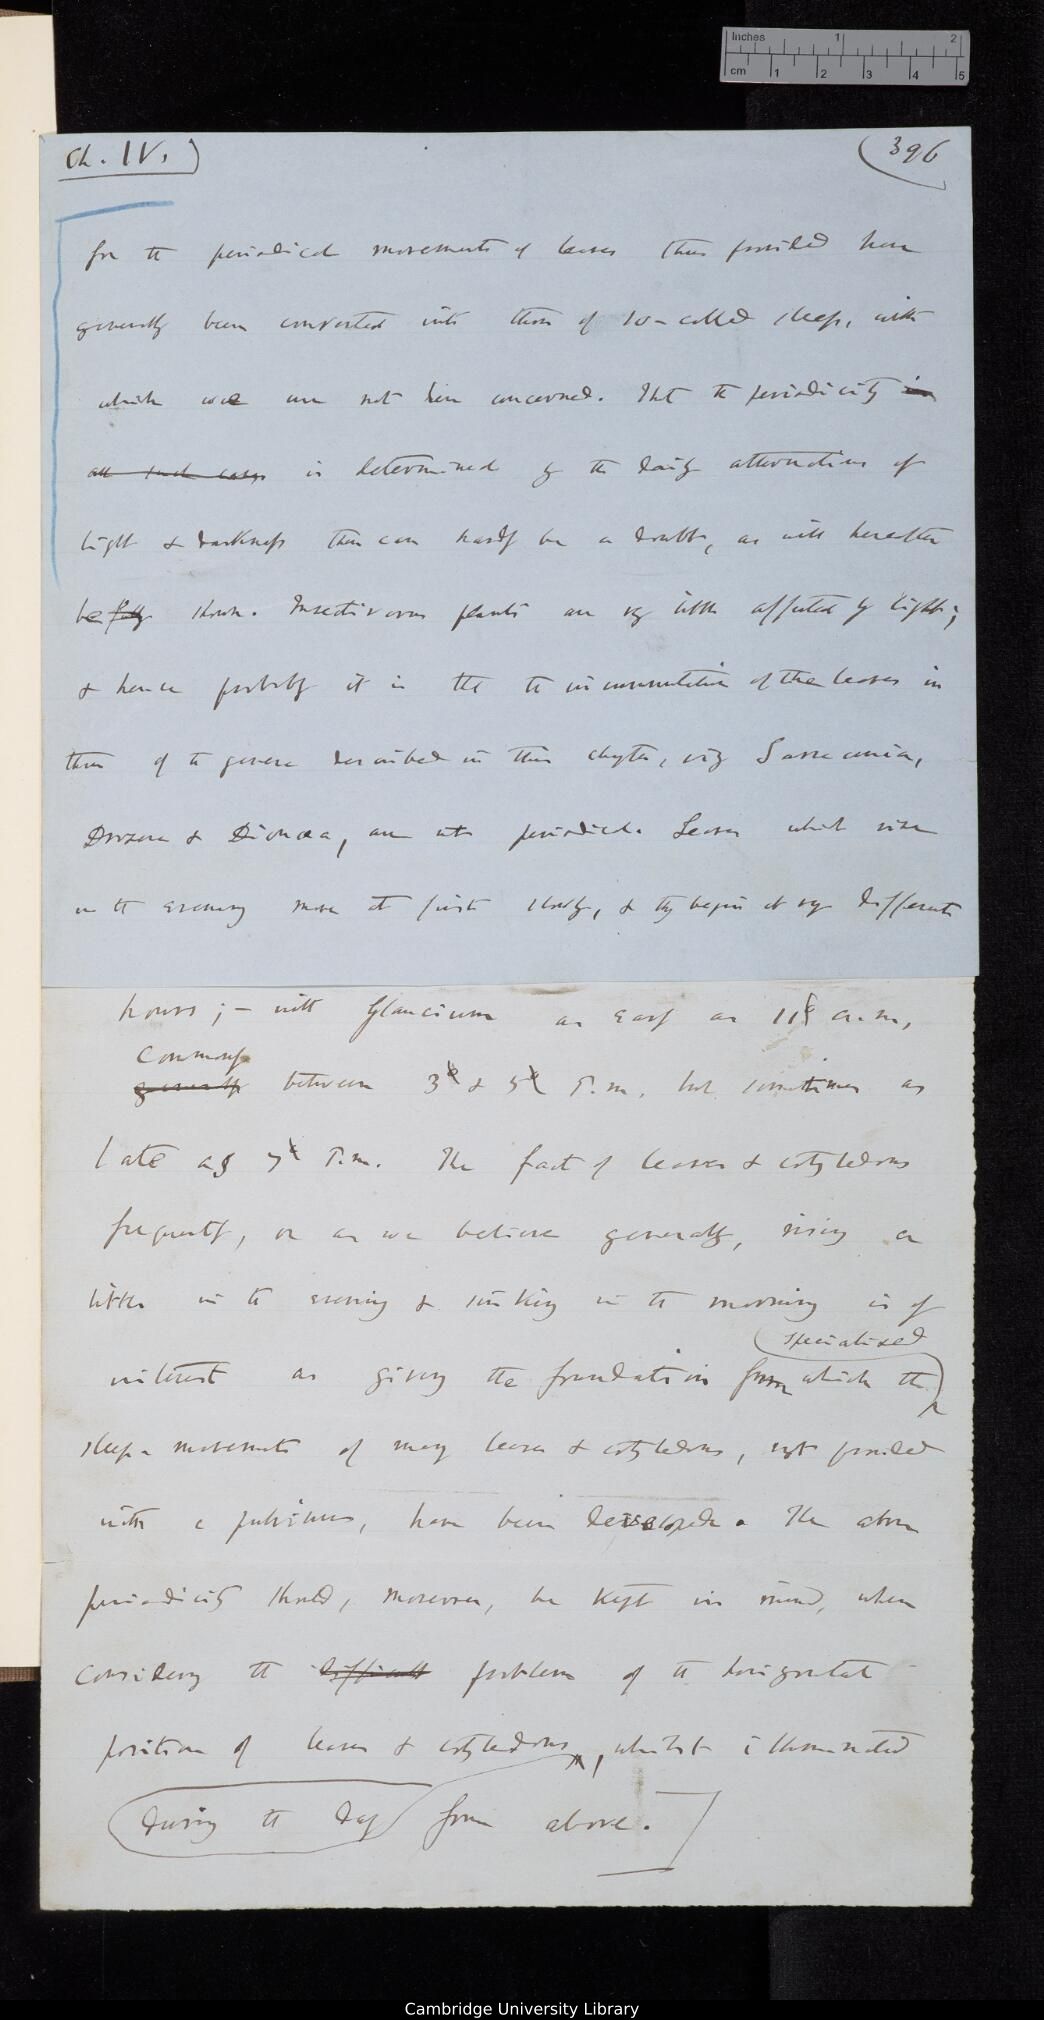 Inches 1 2
cm 1 2 3 4 5
Ch. IV.
396
for the periodical movements of leaves thus provided have
generally been converted into those of so-called sleep, with
which we are not here concerned. That the periodicity in
all such cases is determined by the daily alternations of
light & darkness there can hardly be a doubt, as will hereafter
be fully shown. Insectivorous plants are very little affected by light;
& hence probably it is that the circumnutation of the leaves in
three of the genera described in this chapter, viz Sarracenia,
Drosera & Dionæa, are not periodical. Leaves which rise
in the evening move at first slowly, & they begin at very different
hours; – with Glaucium as early as 11 a.m,
commonly
generally between 3 & 5 P.m, but sometimes as
late as 7 P.m. The fact of leaves & cotyledons
frequently, or as we believe generally, rising a
little in the evening & sinking in the morning is of
specialised
interest as giving the foundation from which the
sleep-movements of many leaves & cotyledons, not provided
with a pulvinus, have been developed. The above
periodicity should, moreover, be kept in mind, when
considering the difficult problem of the horizontal
position of leaves & cotyledons, whilst illuminated
during the day from above.
Cambridge University Library